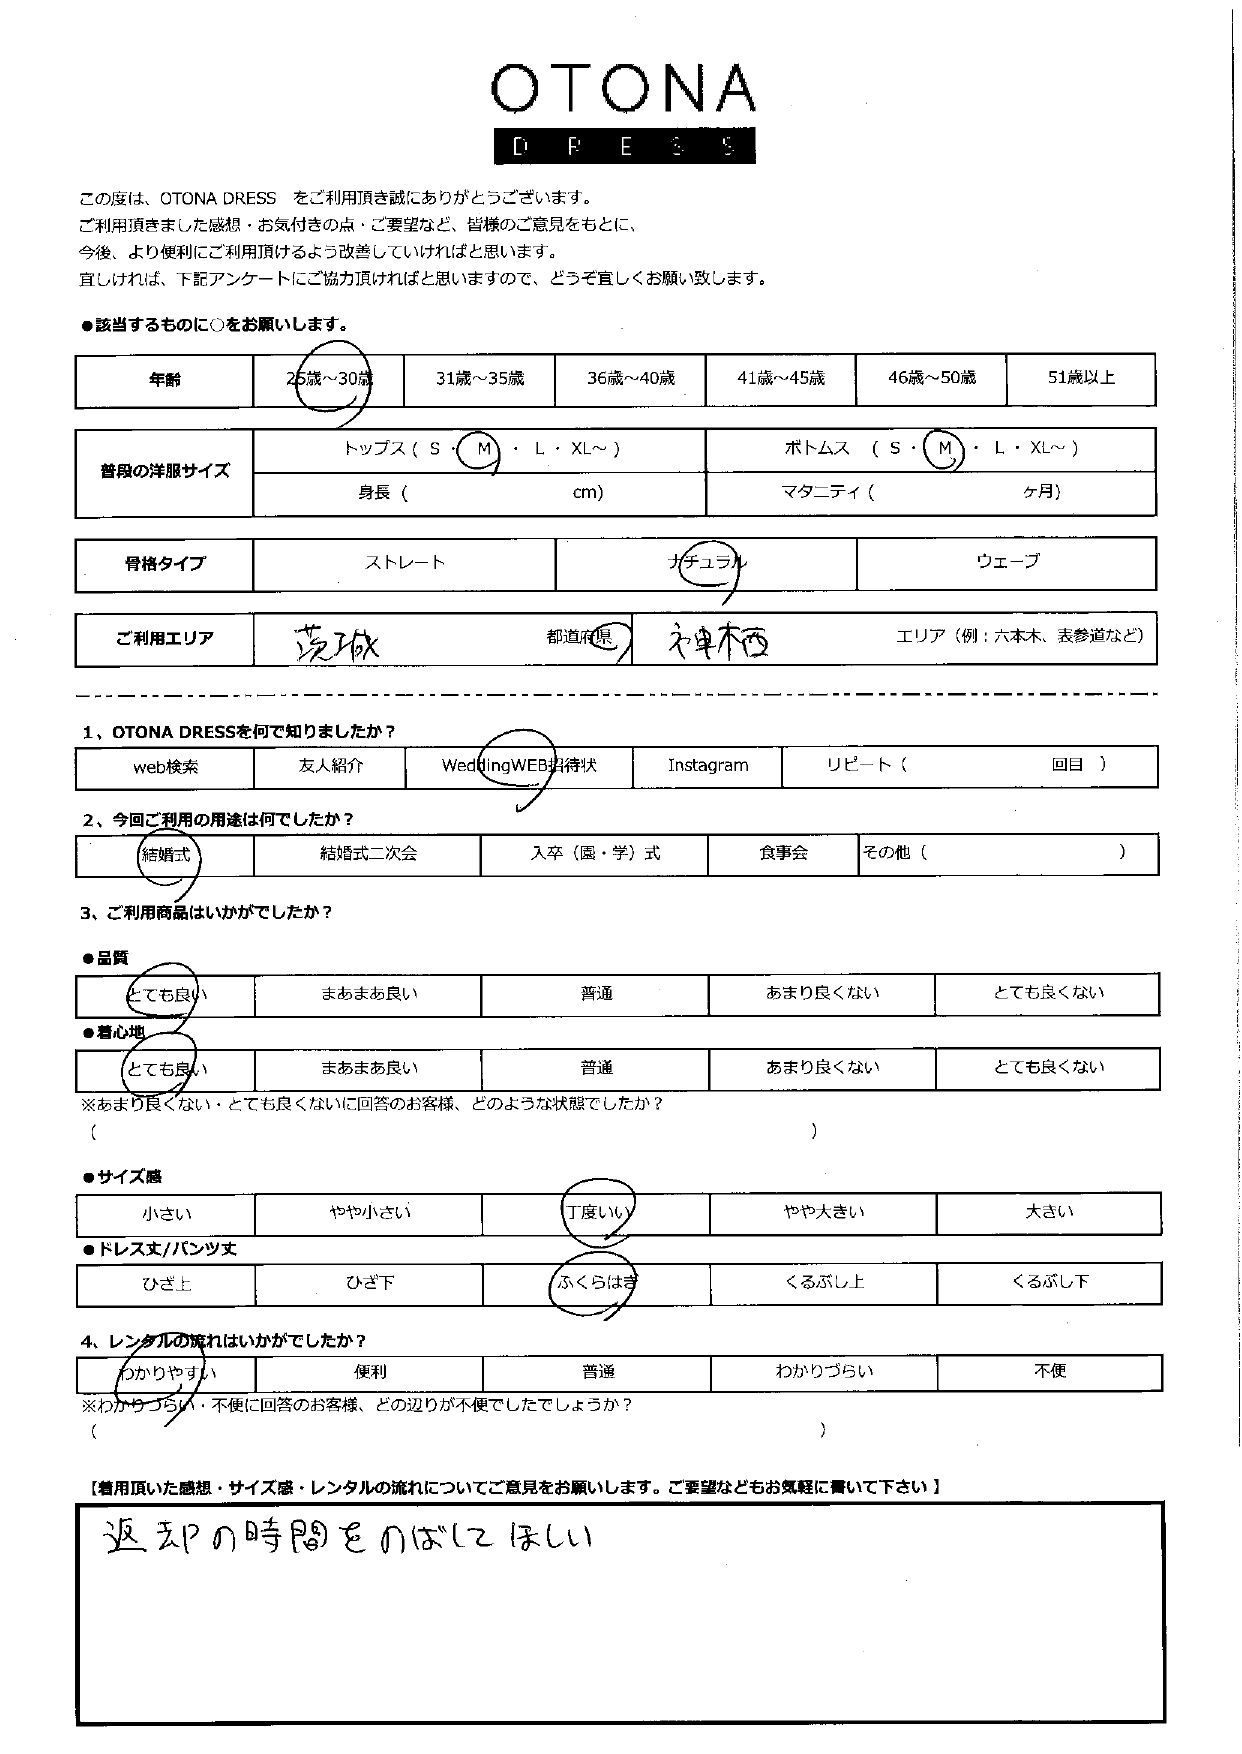 OTONA
DRESS
この度は、OTONA DRESS をご利用頂き誠にありがとうございます。
ご利用頂きました感想・お気付きの点・ご要望など、皆様のご意見をもとに、
今後、より便利にご利用頂けるよう改善していければと思います。
宜しければ、下記アンケートにご協力頂ければと思いますので、どうぞ宜しくお願い致します。
●該当するものに○をお願いします。
年齢 25歳～30歳 31歳～35歳 36歳～40歳 41歳～45歳 46歳～50歳 51歳以上
普段の洋服サイズ トップス ( S ・ M ・ L ・ XL～ ) ボトムス ( S ・ M ・ L ・ XL～ )
身長 ( cm) マタニティ ( ヶ月)
骨格タイプ ストレート ナチュラル ウェーブ
ご利用エリア 茨城 都道府県 神栖 エリア（例：六本木、表参道など）
1、OTONA DRESSを何で知りましたか？
web検索 友人紹介 WeddingWEB招待状 Instagram リピート（ 回目 ）
2、今回ご利用の用途は何でしたか？
結婚式 結婚式二次会 入卒（園・学）式 食事会 その他（ ）
3、ご利用商品はいかがでしたか？
●品質
とても良い まあまあ良い 普通 あまり良くない とても良くない
●着心地
とても良い まあまあ良い 普通 あまり良くない とても良くない
※あまり良くない・とても良くないに回答のお客様、どのような状態でしたか？
（ ）
●サイズ感
小さい やや小さい 丁度いい やや大きい 大きい
●ドレス丈/パンツ丈
ひざ上 ひざ下 ふくらはぎ くるぶし上 くるぶし下
4、レンタルの流れはいかがでしたか？
わかりやすい 便利 普通 わかりづらい 不便
※わかりづらい・不便に回答のお客様、どの辺りが不便でしたでしょうか？
（ ）
【着用頂いた感想・サイズ感・レンタルの流れについてご意見をお願いします。ご要望などもお気軽に書いて下さい】
返却の時間をのばしてほしい